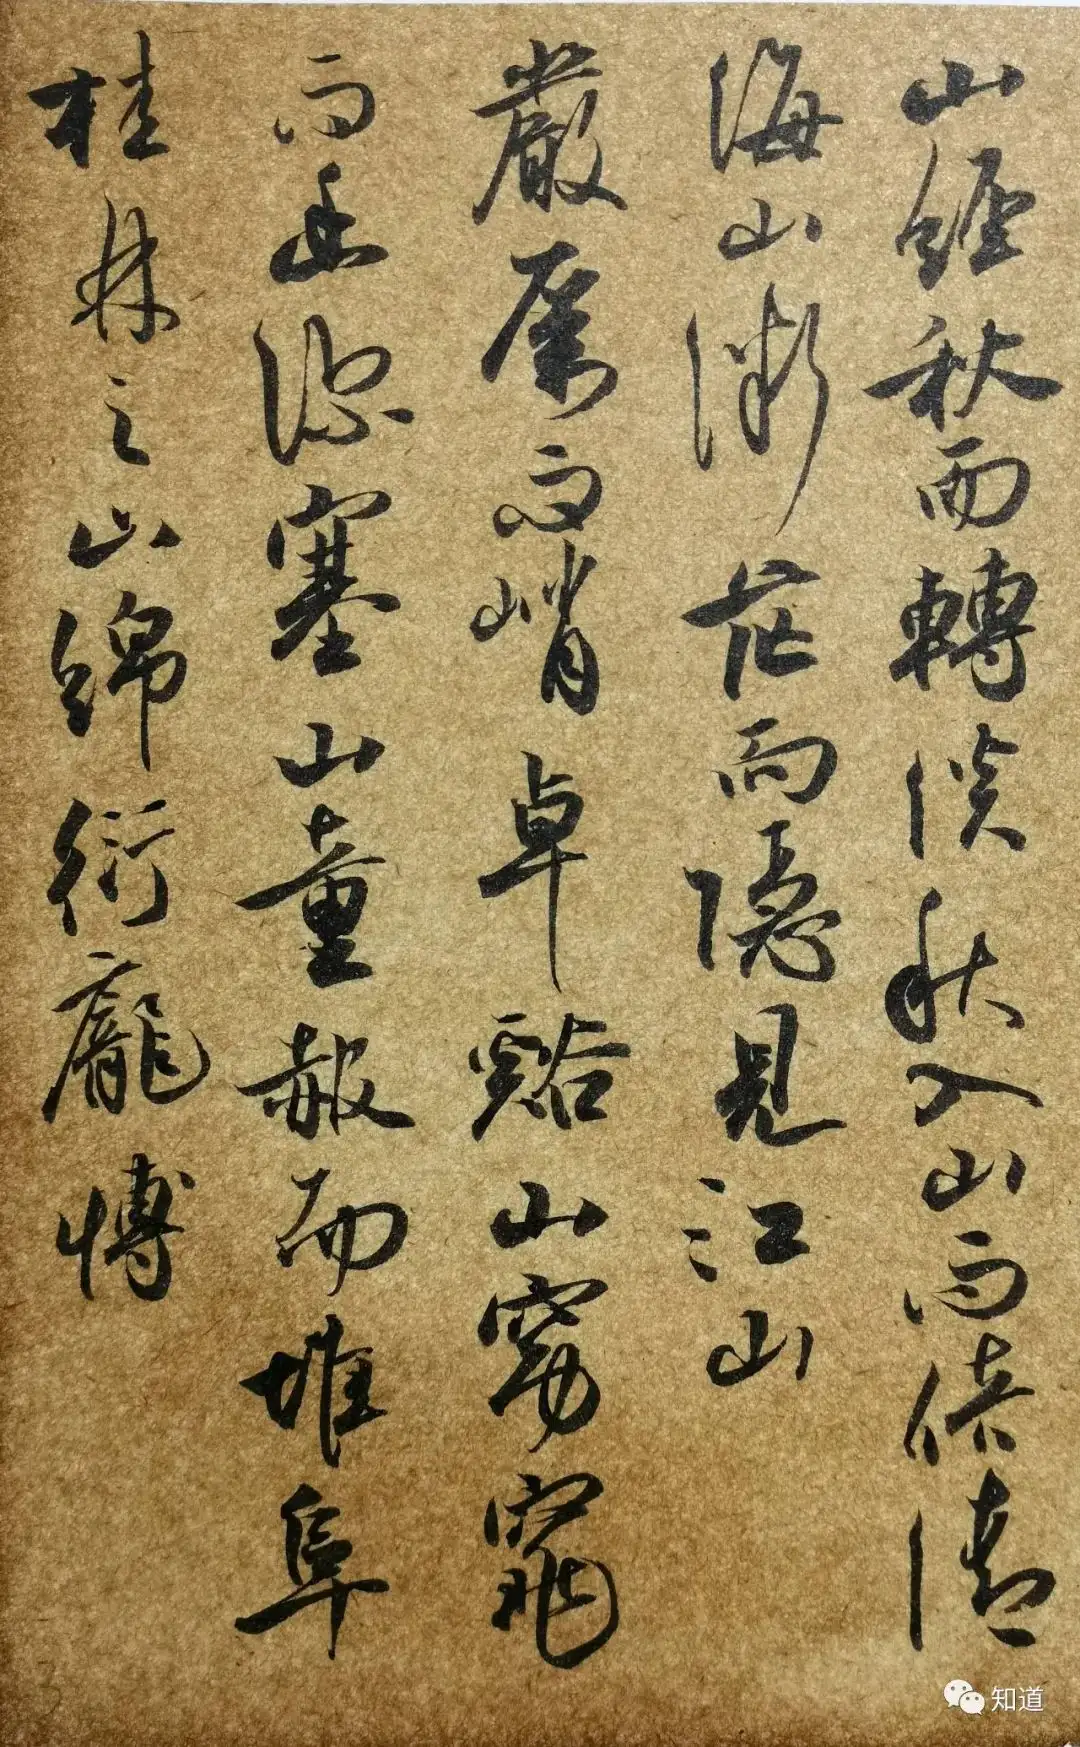 山經秋而轉淡秋入山而倍清
海山微茫而隱見江山
嚴厲而峭卓谿山窈窕
而幽深塞山童赧而堆阜
桂林之山綿衍龐博
知道